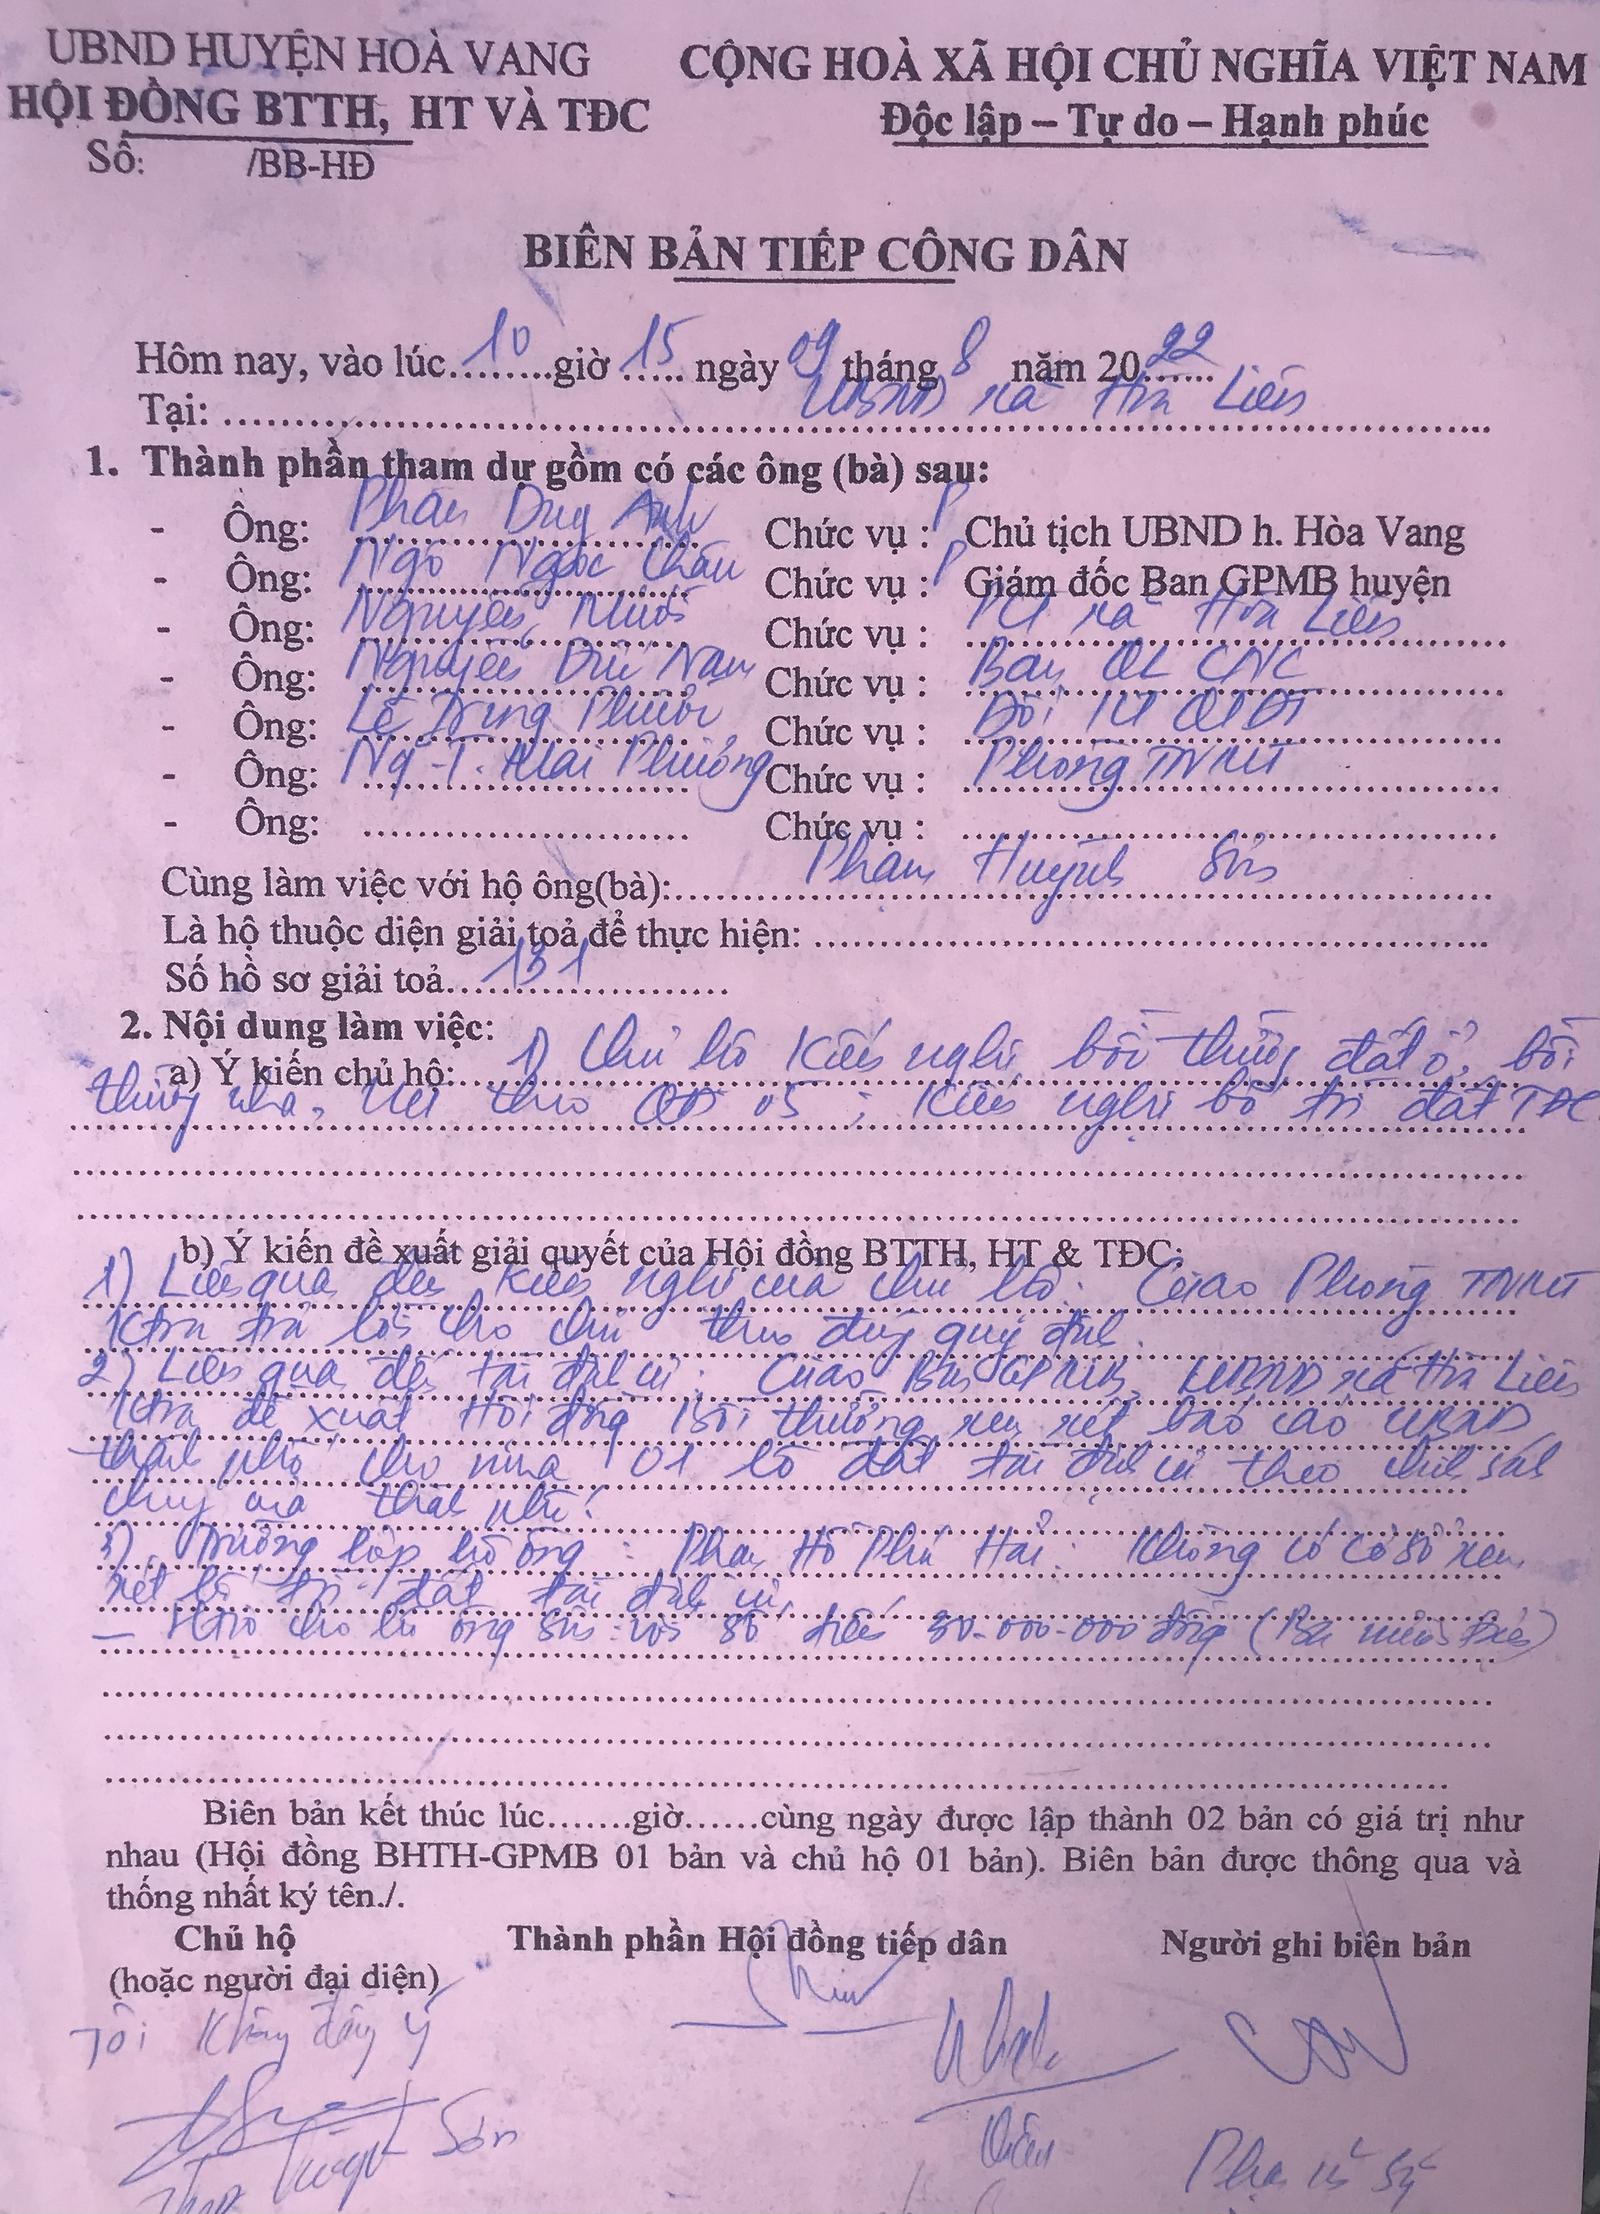 UBND HUYỆN HOÀ VANG
HỘI ĐỒNG BTTH, HT VÀ TĐC
Số: /BB-HĐ
CỘNG HOÀ XÃ HỘI CHỦ NGHĨA VIỆT NAM
Độc lập – Tự do – Hạnh phúc
BIÊN BẢN TIẾP CÔNG DÂN
Hôm nay, vào lúc 10 giờ 15 ngày 09 tháng 8 năm 2022
Tại: UBND xã Hòa Liên
1. Thành phần tham dự gồm có các ông (bà) sau:
- Ông: Phan Duy Anh Chức vụ : P Chủ tịch UBND h. Hòa Vang
- Ông: Ngô Ngọc Châu Chức vụ : P Giám đốc Ban GPMB huyện
- Ông: Nguyễn Chức vụ : xã Hòa Liên
- Ông: Nguyễn Đức Nam Chức vụ : Ban QL CNC
- Ông: Lê Trung Phước Chức vụ : Đội KT QTĐT
- Ông: Ng T. Mai Phương Chức vụ : Phòng TNMT
- Ông: Chức vụ :
Cùng làm việc với hộ ông(bà): Phan Huỳnh Sơn
Là hộ thuộc diện giải toả để thực hiện:
Số hồ sơ giải toả 131
2. Nội dung làm việc:
a) Ý kiến chủ hộ: 1) Chủ hộ kiến nghị bồi thường đất ở, bồi
thường nhà, theo QĐ 05 ; kiến nghị bố trí đất TĐC
b) Ý kiến đề xuất giải quyết của Hội đồng BTTH, HT & TĐC:
1) Liên quan đến kiến nghị của chủ hộ: Giao Phòng TNMT
Ktra trả lời cho chủ theo đúng quy định.
2) Liên quan đến tái định cư: Giao Ban GPMB, UBND xã Hòa Liên
Ktra đề xuất Hội đồng Bồi thường xem xét báo cáo UBND
thành phố cho mua 01 lô đất tái định cư theo chính sách
chung của thành phố!
3) Trường hợp hộ ông: Phan Hồ Phú Hải: Không có cơ sở xem
xét bố trí đất tái định cư,
- Htrợ cho hộ ông Sơn với số tiền 30.000.000 đồng (Ba mươi triệu)
Biên bản kết thúc lúc.......giờ......cùng ngày được lập thành 02 bản có giá trị như
nhau (Hội đồng BHTH-GPMB 01 bản và chủ hộ 01 bản). Biên bản được thông qua và
thống nhất ký tên./.
Chủ hộ Thành phần Hội đồng tiếp dân Người ghi biên bản
(hoặc người đại diện)
Tôi Không đồng ý
Sơn